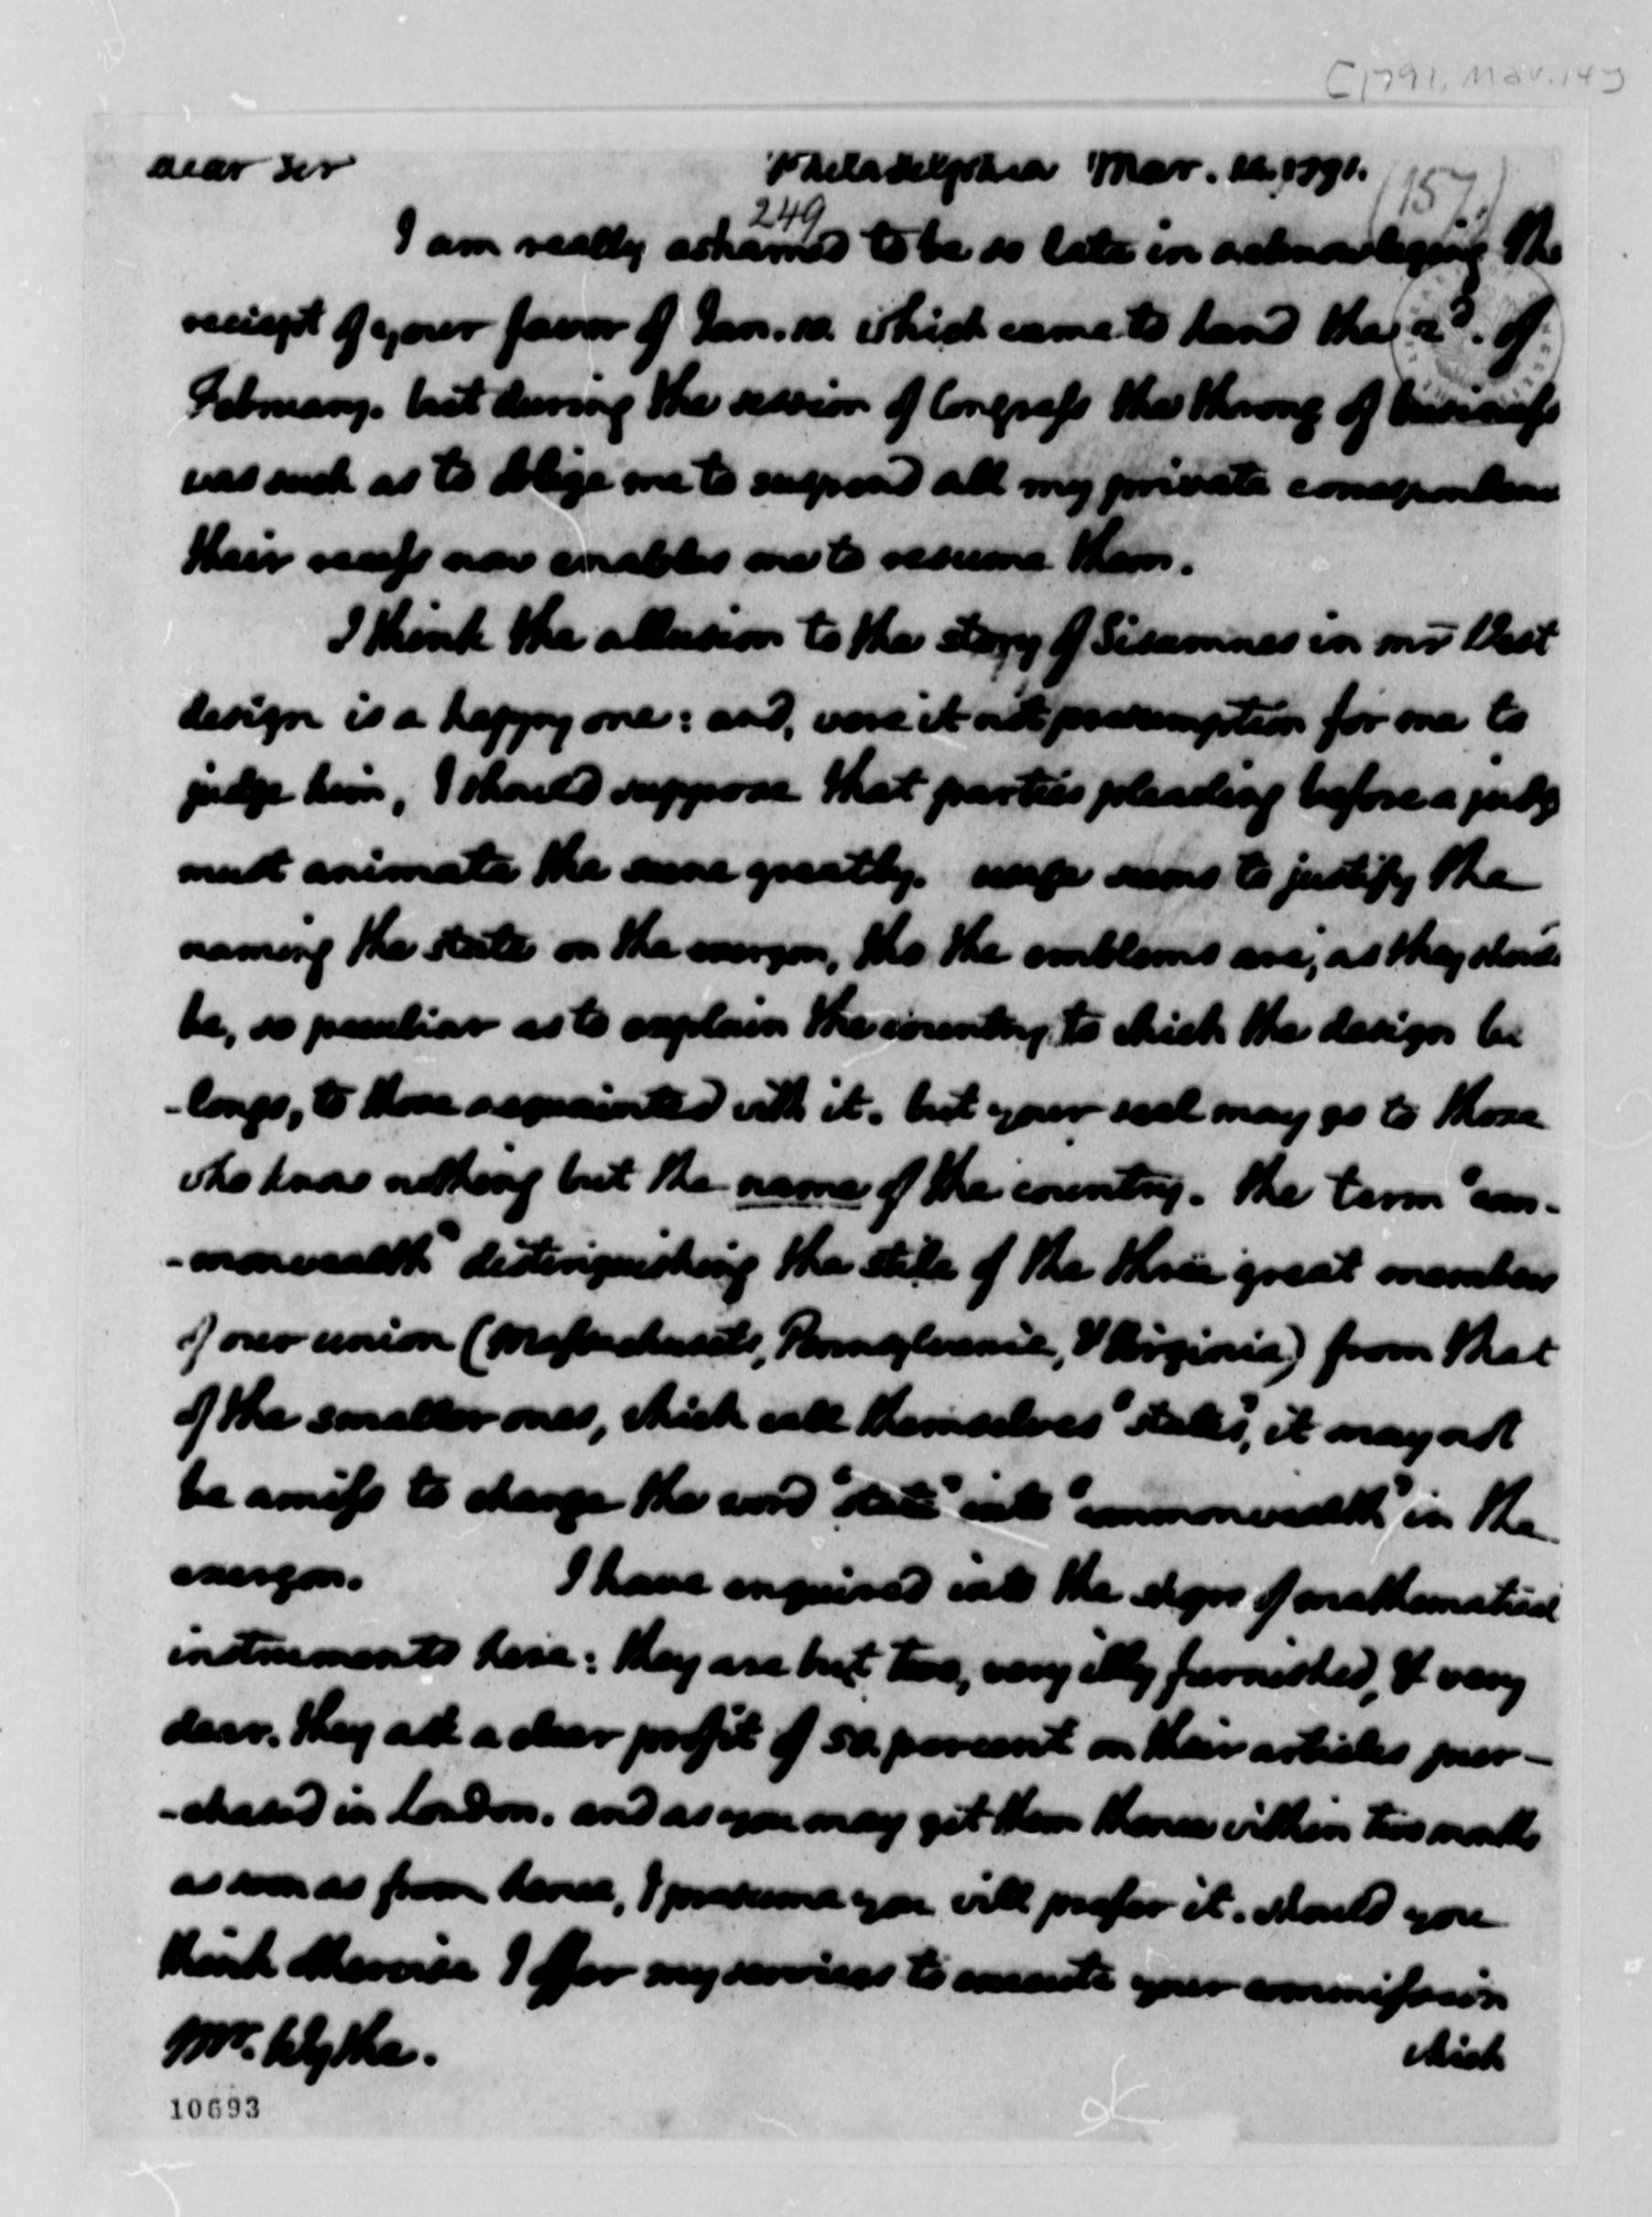 [1791, Mar. 14]
Dear Sir Philadelphia Mar. 1791.
(157)
249
I am really ashamed to be so late in acknowleging the
reciept of your favor of Jan. 10. which came to hand the 2d. of
February. but during the session of Congress the throng of business
was such as to oblige me to suspend all my private correspondence
their recess now enables me to resume them.
I think the allusion to the story of Sisamnes in mr West
design is a happy one: and, were it not presumption for me to
judge him, I should suppose that parties pleading before a judge
must animate the scene greatly. usage seems to justify the
naming the state on the exergon, tho the emblems are, as they should
be, so peculiar as to explain the country to which the design be
-longs, to those acquainted with it. but your seal may go to those
who know nothing but the name of the country. the term "com-
-monwealth" distinguishing the stile of the three great members
of our union (Massachusets, Pennsylvania, & Virginia) from that
of the smaller ones, which call themselves "states", it may not
be amiss to change the word "state" into "commonwealth" in the
exergon. I have enquired into the shops of mathematical
instruments here: they are but two, very illy furnished, & very
dear. they ask a clear profit of 50. percent on their articles pur-
-chased in London. and as you may get them thence within two months
as soon as from hence, I presume you will prefer it. should you
think otherwise I offer my services to execute your commission
Mr. Wythe. which
10693